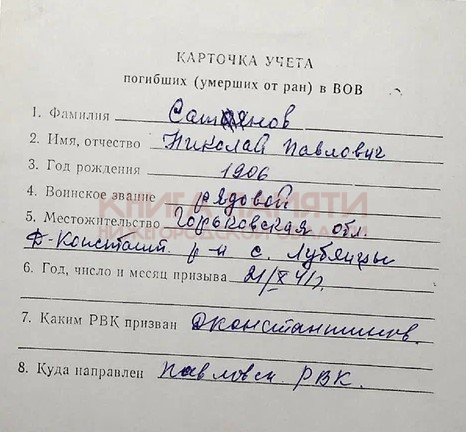 КАРТОЧКА УЧЕТА
погибших (умерших от ран) в ВОВ
1. Фамилия Сатянов
2. Имя, отчество Николай Павлович
3. Год рождения 1906
4. Воинское звание рядовой
5. Местожительство Горьковская обл.
Д-Констант. р-н с. Лубянцы
6. Год, число и месяц призыва 21/X 41г.
7. Каким РВК призван Дконстантинов.
8. Куда направлен Павловск. РВК.
КНИГА ПАМЯТИ
НИЖЕГОРОДСКОЙ ОБЛАСТИ